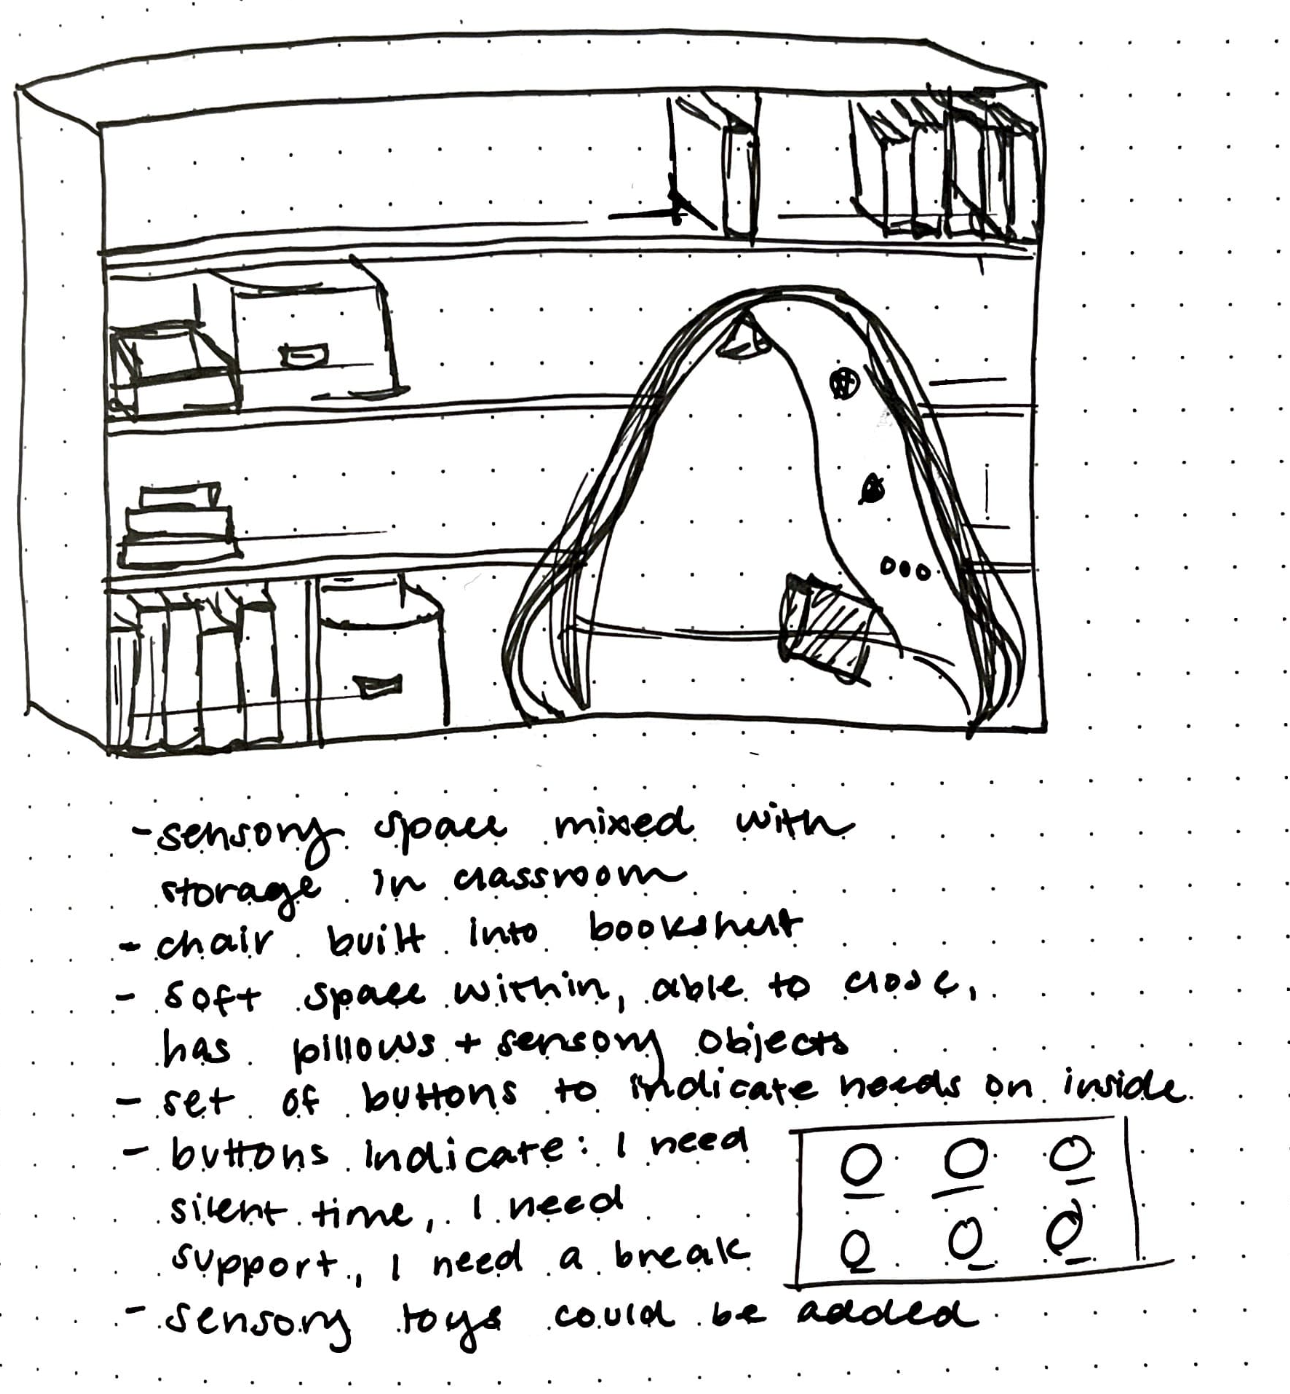 - sensory space mixed with
storage in classroom
- chair built into bookshelf
- soft space within, able to close,
has pillows + sensory objects
- set of buttons to indicate needs on inside
- buttons indicate: I need
silent time, I need
support, I need a break
- sensory toys could be added